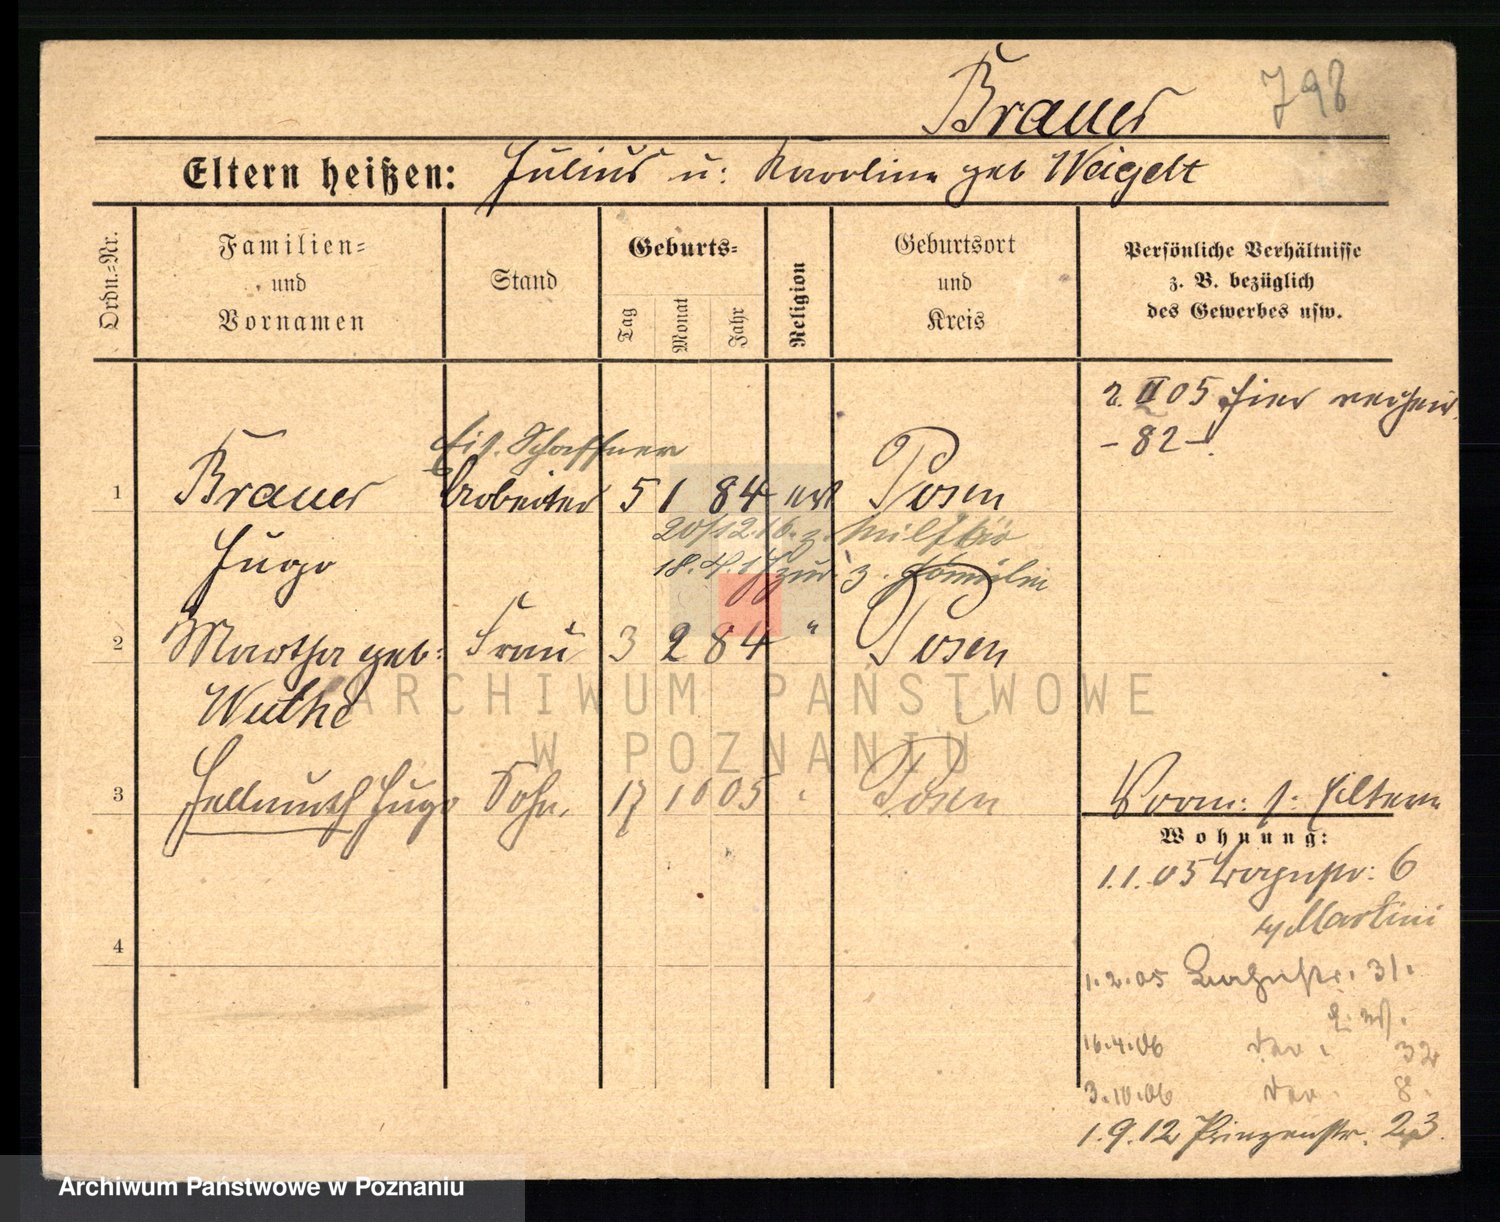 Brauer 798
Eltern heißen: Julius u: Karoline geb Weigelt
Ordn.-Nr.
Familien-
und
Vornamen
Stand
Geburts-
Tag
Monat
Jahr
Religion
Geburtsort
und
Kreis
Persönliche Verhältnisse
z. B. bezüglich
des Gewerbes usw.
2. II 05 hier verheir.
- 82 -
Eis. Schaffner
1 Brauer Arbeiter 5 1 84 ev Posen
Hugo
20/12.16. z.
18.4.17 zur. z. Familie
2 Martha geb: Frau 3 2 84 " Posen
Wuthe
3 Hellmuth Hugo Sohn. 17 10 05 Posen
Vorm: s: Eltern
Wohnung:
1.1.05 6
Martini
1.2.05 31.
16.4.06 32
3.10.06 8.
1.9.12 Prinzenstr. 23.
4
ARCHIWUM PAŃSTWOWE
W POZNANIU
Archiwum Państwowe w Poznaniu